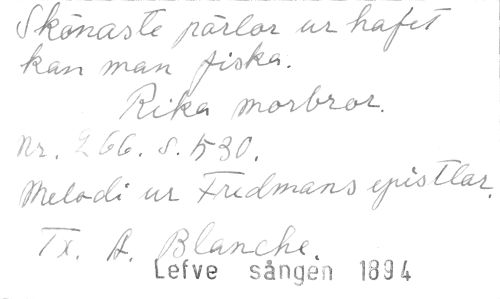 Skönaste pärlor ur hafvet
kan man fiska.
Rika morbror.
Nr. 266. s. 530.
Melodi ur Fredmans epistlar.
Tx. A. Blanche.
Lefve sången 1894